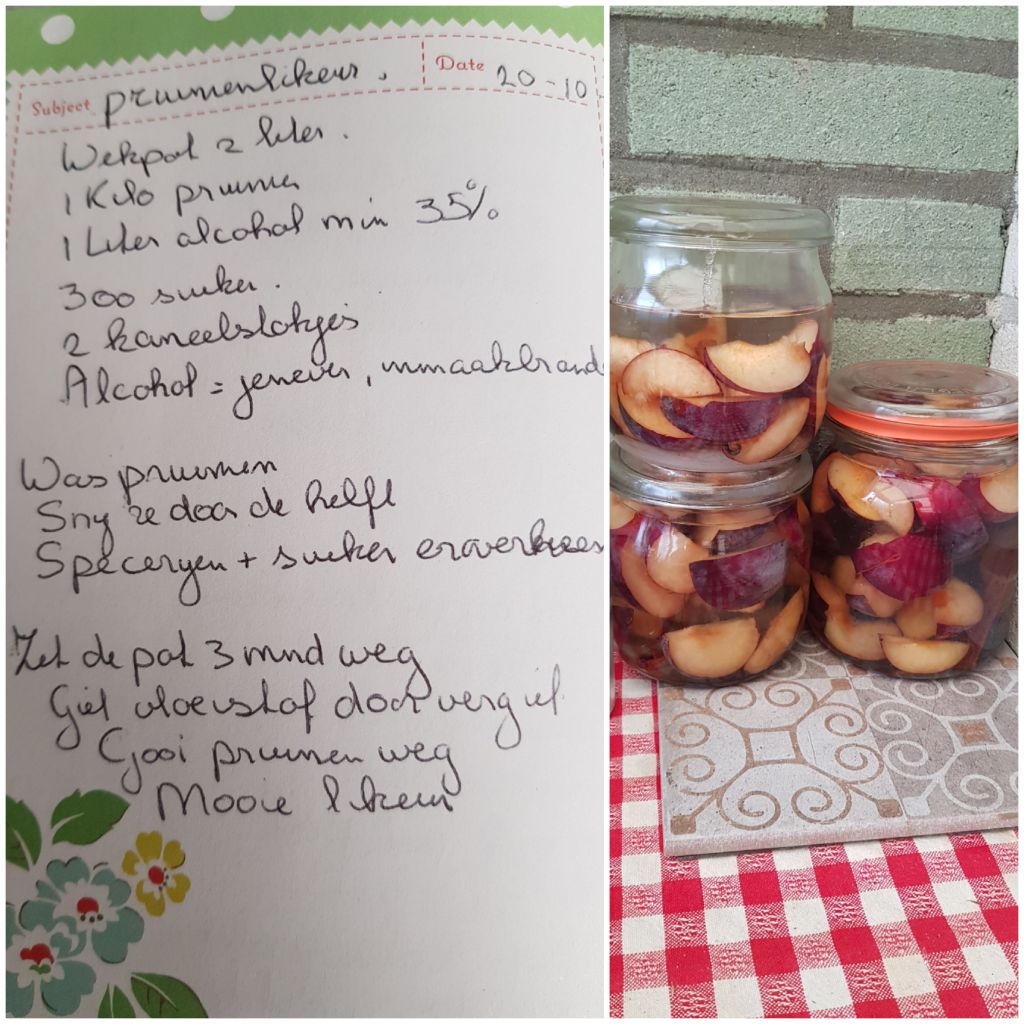 Subject pruimenlikeur. Date 20-10
Wekpot 2 liter.
1 Kilo pruimen
1 Liter alcohol min 35%
300 suiker.
2 kaneelstokjes
Alcohol = jenever, inmaakbrand
Was pruimen
Sny ze door de helft
Speceryen + suiker erover
Zet de pot 3 mnd weg
Giet vloeistof door vergiet
Gooi pruimen weg
Mooie likeur